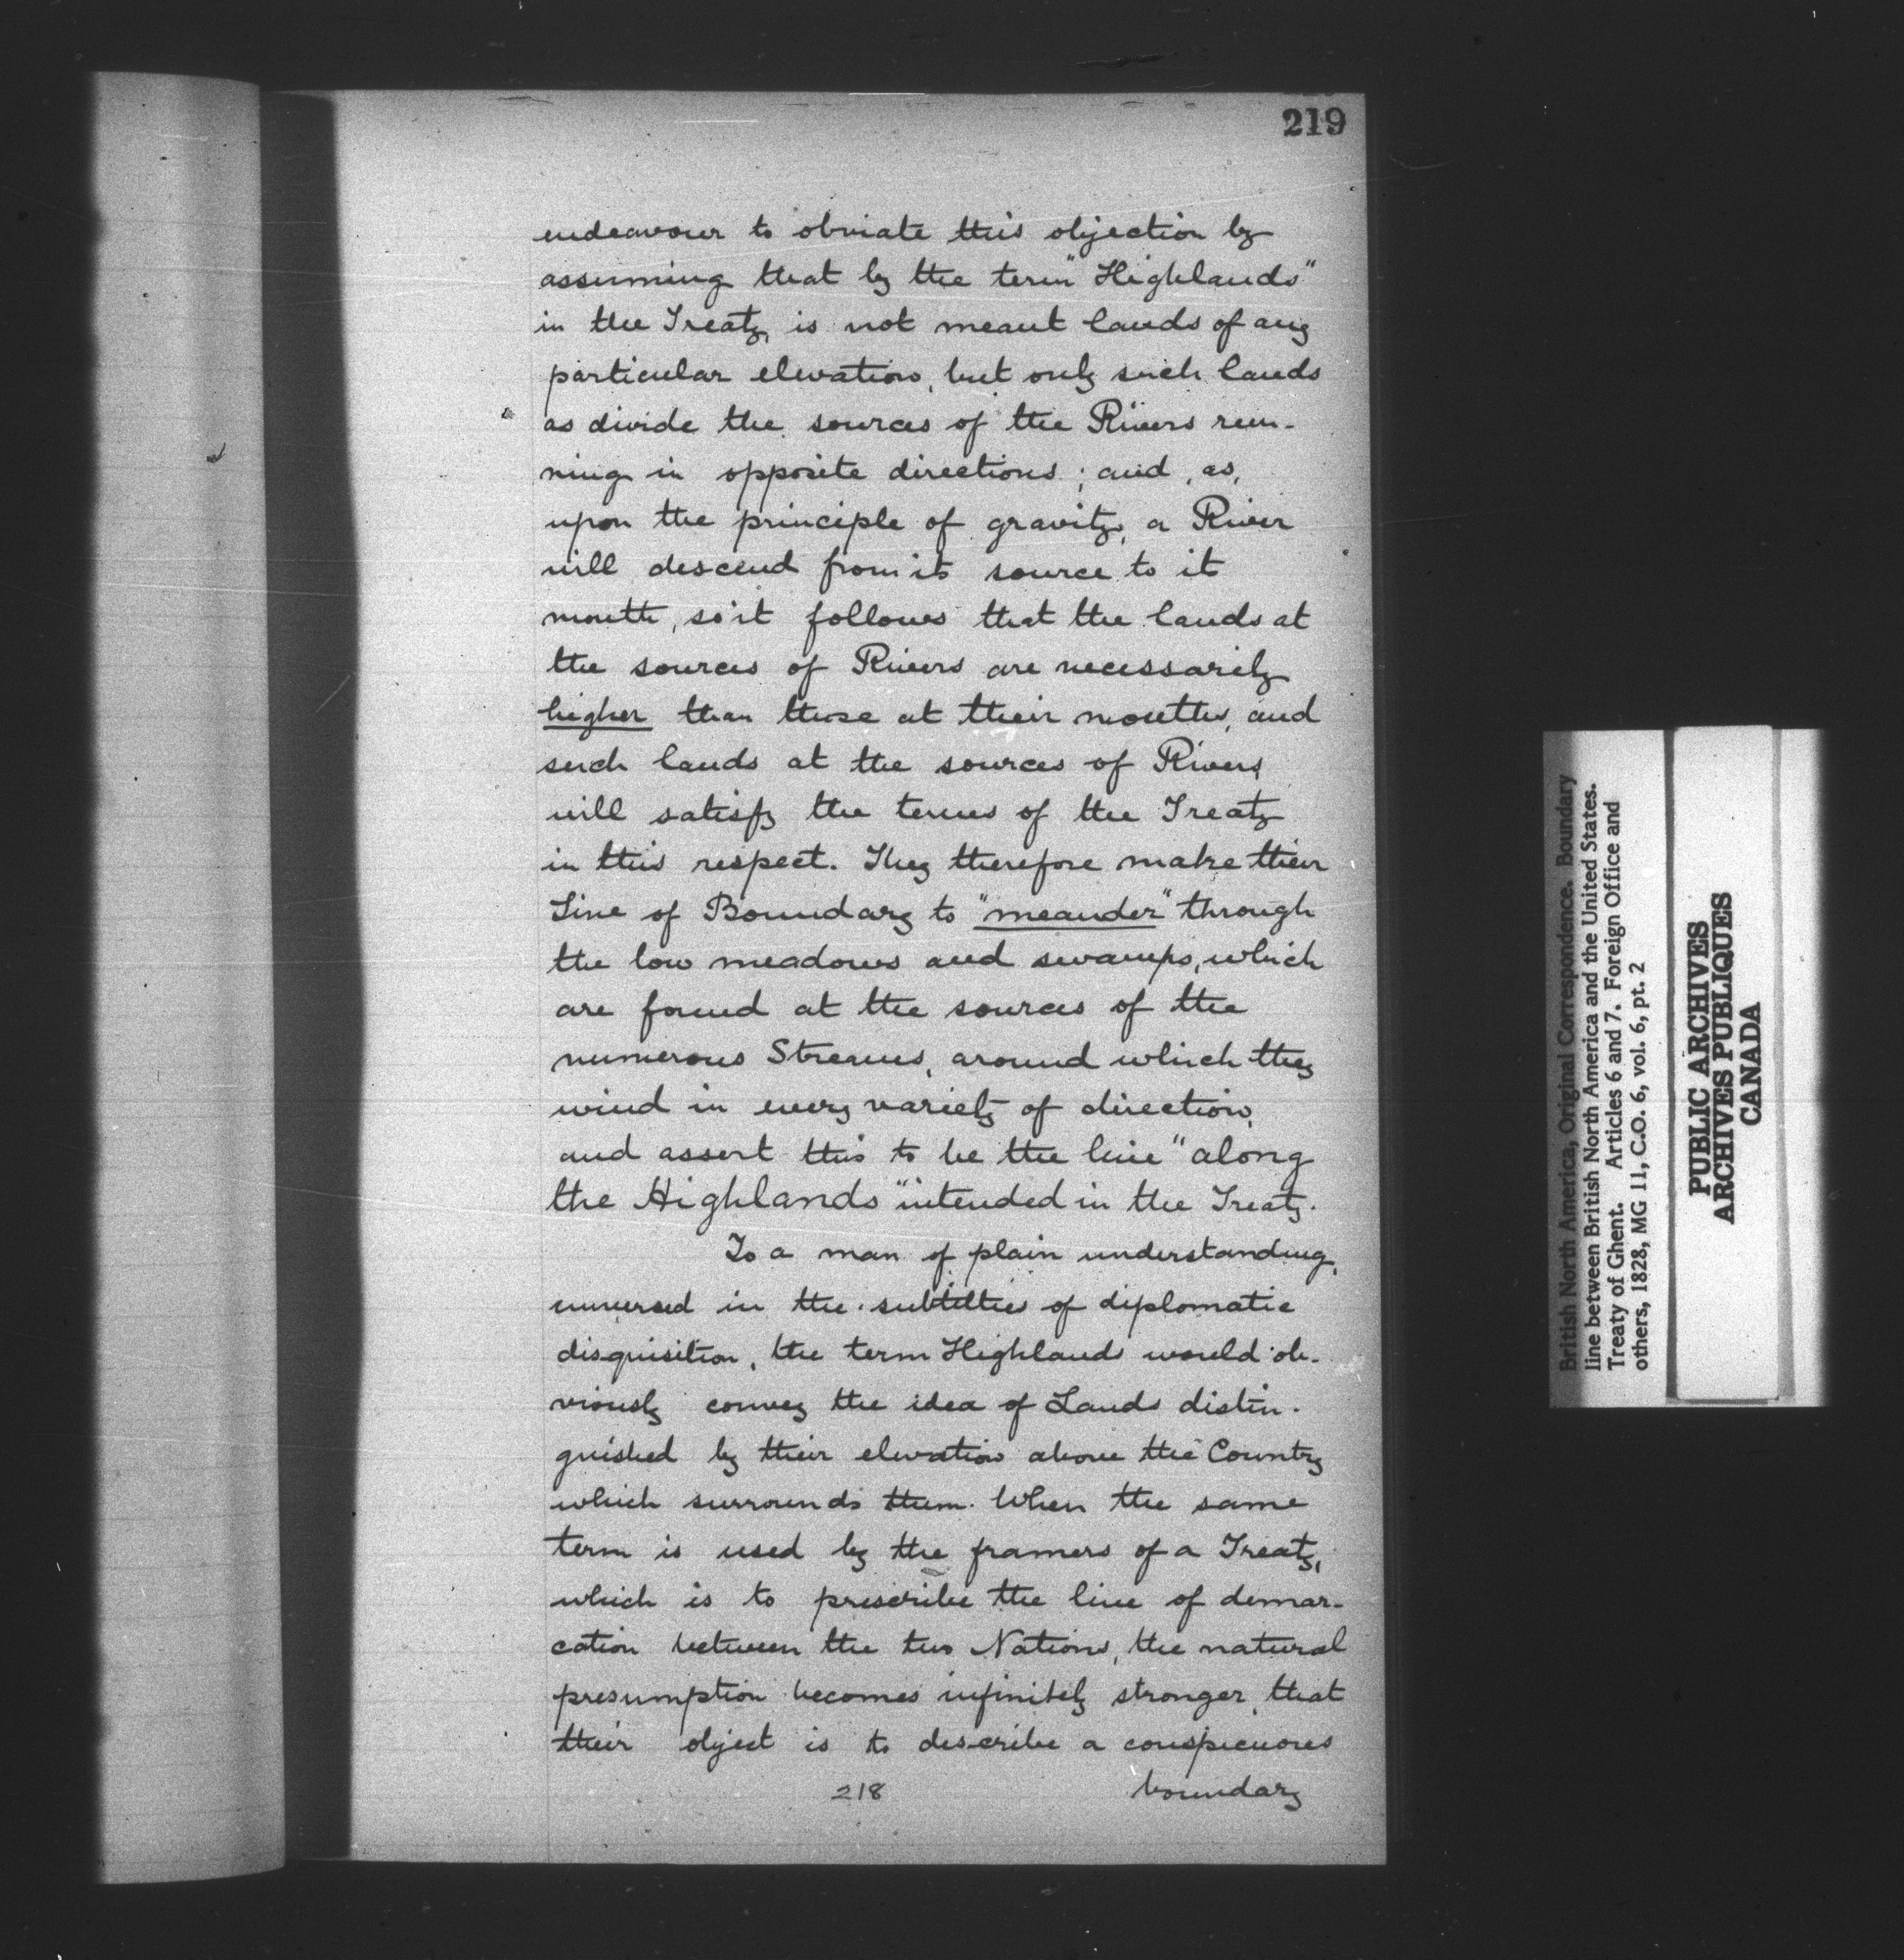 219
endeavour to obviate this objection by
assuming that by the term "Highlands"
in the Treaty, is not meant lands of any
particular elevation, but only such lands
as divide the sources of the Rivers run-
ning in opposite directions; and, as,
upon the principle of gravity, a River
will descend from its source to its
mouth, so it follows that the lands at
the sources of Rivers are necessarily
higher than those at their mouths, and
such lands at the sources of Rivers
will satisfy the terms of the Treaty
in this respect. They therefore make their
Line of Boundary to "meander" through
the low meadows and swamps, which
are found at the sources of the
numerous Streams, around which they
wind in every variety of direction,
and assert this to be the line "along
the Highlands" intended in the Treaty.
To a man of plain understanding,
unversed in the subtilties of diplomatic
disquisition, the term Highlands would ob-
viously convey the idea of Lands distin-
guished by their elevation above the Country
which surrounds them. When the same
term is used by the framers of a Treaty,
which is to prescribe the line of demar-
cation between the two Nations, the natural
presumption becomes infinitely stronger, that
their object is to describe a conspicuous
218 boundary
British North America, Original Correspondence. Boundary
line between British North America and the United States.
Treaty of Ghent. Articles 6 and 7. Foreign Office and
others, 1828, MG 11, C.O. 6, vol. 6, pt. 2
PUBLIC ARCHIVES
ARCHIVES PUBLIQUES
CANADA